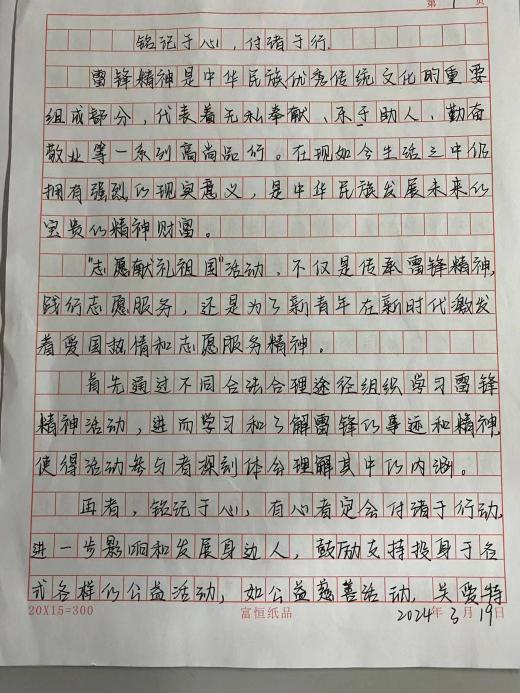 第 1 页
铭记于心，付诸于行.
雷锋精神是中华民族优秀传统文化的重要
组成部分，代表着无私奉献、乐于助人、勤奋
敬业等一系列高尚品行。在现如今生活之中仍
拥有强烈的现实意义，是中华民族发展未来的
宝贵的精神财富。
"志愿献礼祖国"活动，不仅是传承雷锋精神，
践行志愿服务，还是为了新青年在新时代激发
着爱国热情和志愿服务精神。
首先通过不同合法合理途径组织学习雷锋
精神活动，进而学习和了解雷锋的事迹和精神，
使得活动参与者深刻体会理解其中的内涵。
再者，铭记于心，有心者定会付诸于行动，
进一步影响和发展身边人，鼓励支持投身于各
式各样的公益活动，如公益慈善活动，关爱特
20X15=300 富恒纸品 2024年3月19日